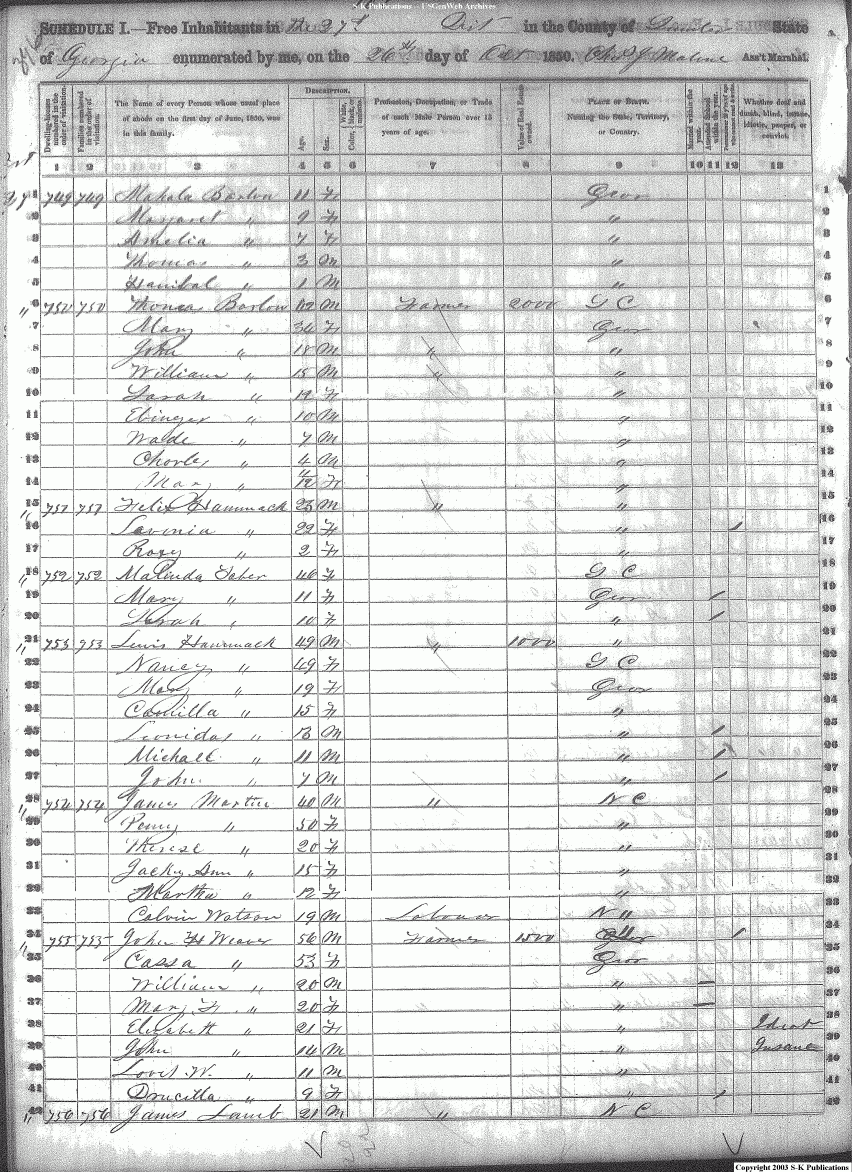 S-K Publications - USGenWeb Archives
SCHEDULE I.—Free Inhabitants in the 27th Dist in the County of State
of Georgia enumerated by me, on the 26th day of Oct 1850. Chas J Malone Ass't Marshal.
Dwelling-houses numbered in the order of visitation. Families numbered in the order of visitation. The Name of every Person whose usual place of abode on the first day of June, 1850, was in this family. Description. Age. Sex. Color, White, black, or mulatto. Profession, Occupation, or Trade of each Male Person over 15 years of age. Value of Real Estate owned. Place of Birth. Naming the State, Territory, or Country. Married within the year. Attended School within the year. Whether deaf and dumb, blind, insane, idiotic, pauper, or convict.
1 2 3 4 5 6 7 8 9 10 11 12 13
1 749 749 Mahala Barlow 11 F Geor 1
2 Margaret " 9 F " 2
3 Amelia " 7 F " 3
4 Thomas " 3 M " 4
5 Hanibal " 1 M " 5
6 750 750 Thomas Barlow 42 M Farmer 2000 S C 6
7 Mary " 34 F Geor 7
8 John " 18 M " " 8
9 William " 15 M " " 9
10 Sarah " 12 F " 10
11 Ebinezer " 10 M " 11
12 Wade " 7 M " 12
13 Charles " 4 M " 13
14 Mary " F " 14
15 751 751 Felix Hammack 23 M " " 15
16 Lavonia " 22 F " / 16
17 Roxy " 2 F " 17
18 752 752 Malinda Taber 46 F S C 18
19 Mary " 11 F Geor / 19
20 Sarah " 10 F " / 20
21 753 753 Lewis Hammack 49 M " 1000 " 21
22 Nancy " 49 F S C 22
23 Mary " 19 F Geor 23
24 Camilla " 15 F " 24
25 Leonidas " 13 M " / 25
26 Michall " 11 M " / 26
27 John " 7 M " / 27
28 754 754 James Martin 40 M " N C 28
29 Penny " 50 F " 29
30 Therese " 20 F " 30
31 Jacky Ann " 15 F " 31
32 Martha " 12 F " 32
33 Calvin Watson 19 M Laborer N " 33
34 755 755 John H Weaver 56 M Farmer 1500 / 34
35 Cassa " 53 F Geor 35
36 William " 20 M " 36
37 Mary F. " 20 F " 37
38 Elizabeth " 21 F " Idiot 38
39 John " 14 M " Insane 39
40 Lovet W. " 11 M " 40
41 Drucilla " 9 F " / 41
42 756 756 James Lamb 21 M " N C 42
Copyright 2003 S-K Publications